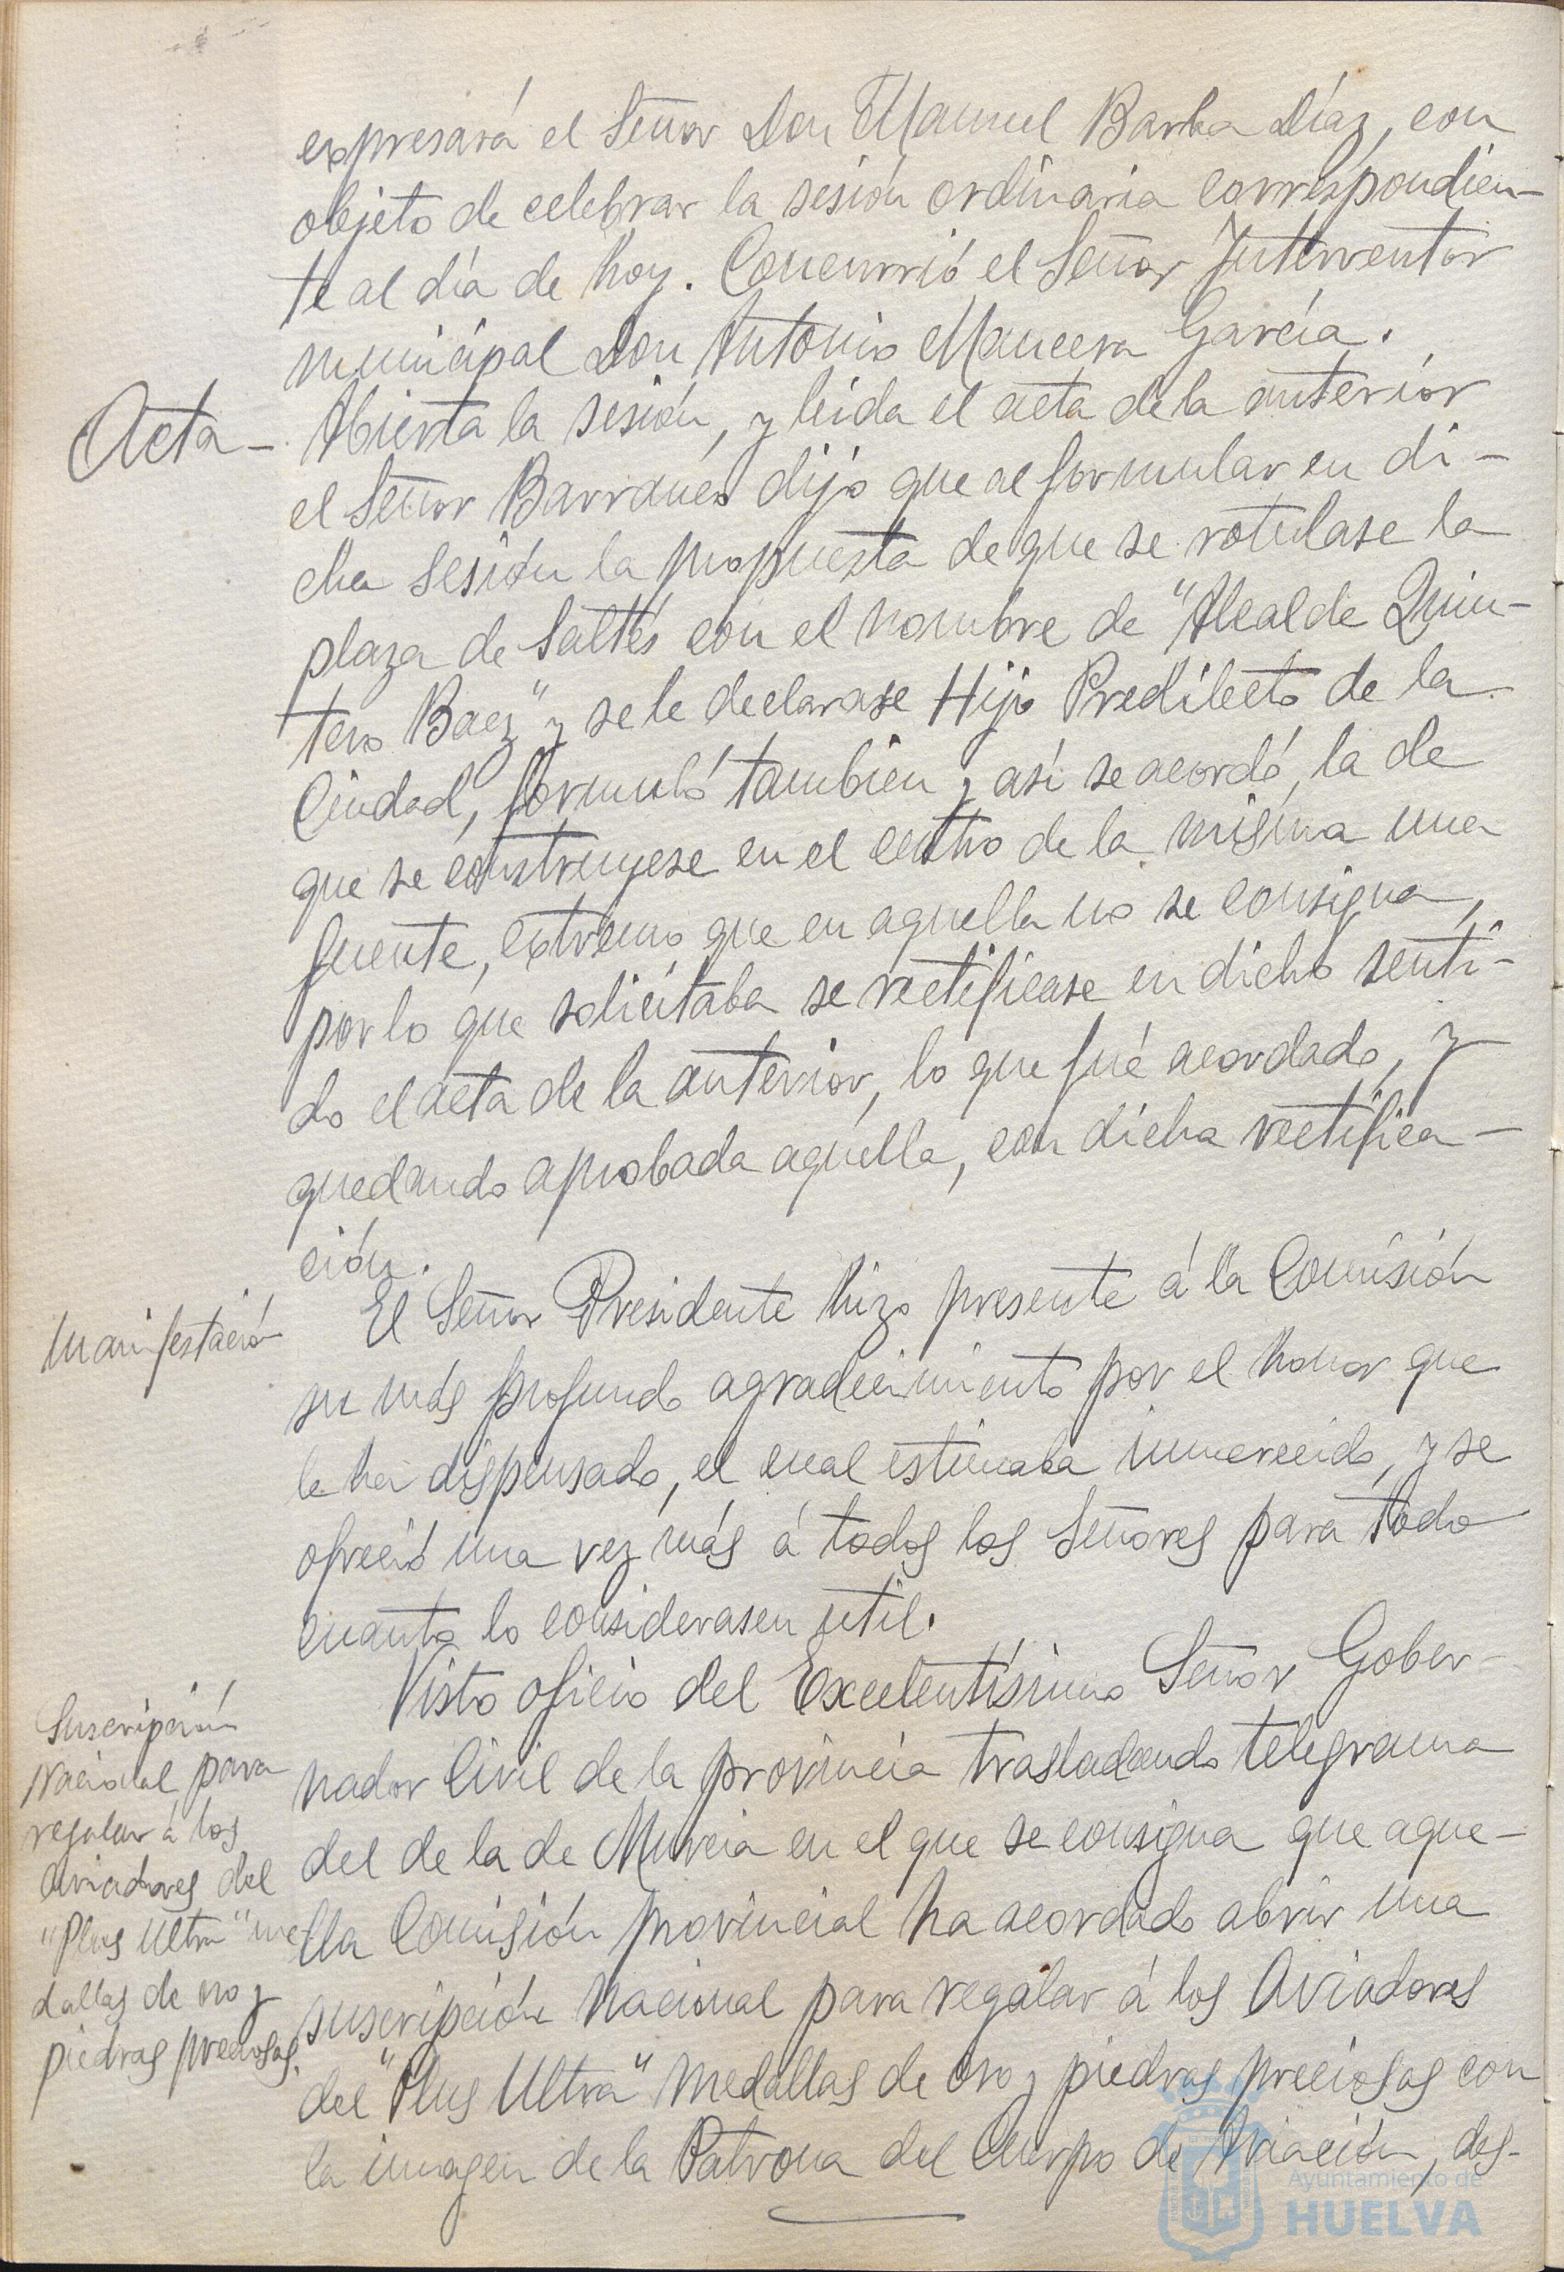 expresará el Señor Don Manuel Barba Díaz, con
objeto de celebrar la sesión ordinaria correspondien-
te al día de hoy. Concurrió el Señor Interventor
municipal Don Antonio Mancera García.
Acta - Abierta la sesión, y leida el acta de la anterior
el Señor dijo que al formular en di-
cha sesión la propuesta de que se rotulase la
plaza de Saltés con el nombre de "Alcalde Quin-
tero Baez" y se le declarase Hijo Predilecto de la
Ciudad, formuló tambien y así se acordó, la de
que se construyese en el centro de la misma una
fuente, extremo que en aquella no se consigna,
por lo que solicitaba se rectificase en dicho senti-
do el acta de la anterior, lo que fué acordado, y
quedando aprobada aquélla, con dicha rectifica-
ción.
Manifestación
El Señor Presidente hizo presente á la Comisión
su más profundo agradecimiento por el honor que
le ha dispensado, el cual estimaba inmerecido, y se
ofreció una vez más á todos los Señores para todo
cuanto lo considerasen util.
Suscripción
Nacional para
regalar á los
Aviadores del
"Plus Ultra" me
dallas de oro y
piedras preciosas.
Visto oficio del Excelentísimo Señor Gober-
nador Civil de la provincia trasladando telegrama
del de la de Murcia en el que se consigna que aque-
lla Comisión provincial ha acordado abrir una
suscripción Nacional para regalar á los Aviadores
del "Plus Ultra" medallas de oro y piedras preciosas con
la imagen de la Patrona del Cuerpo de Aviación, des-
Ayuntamiento de
HUELVA